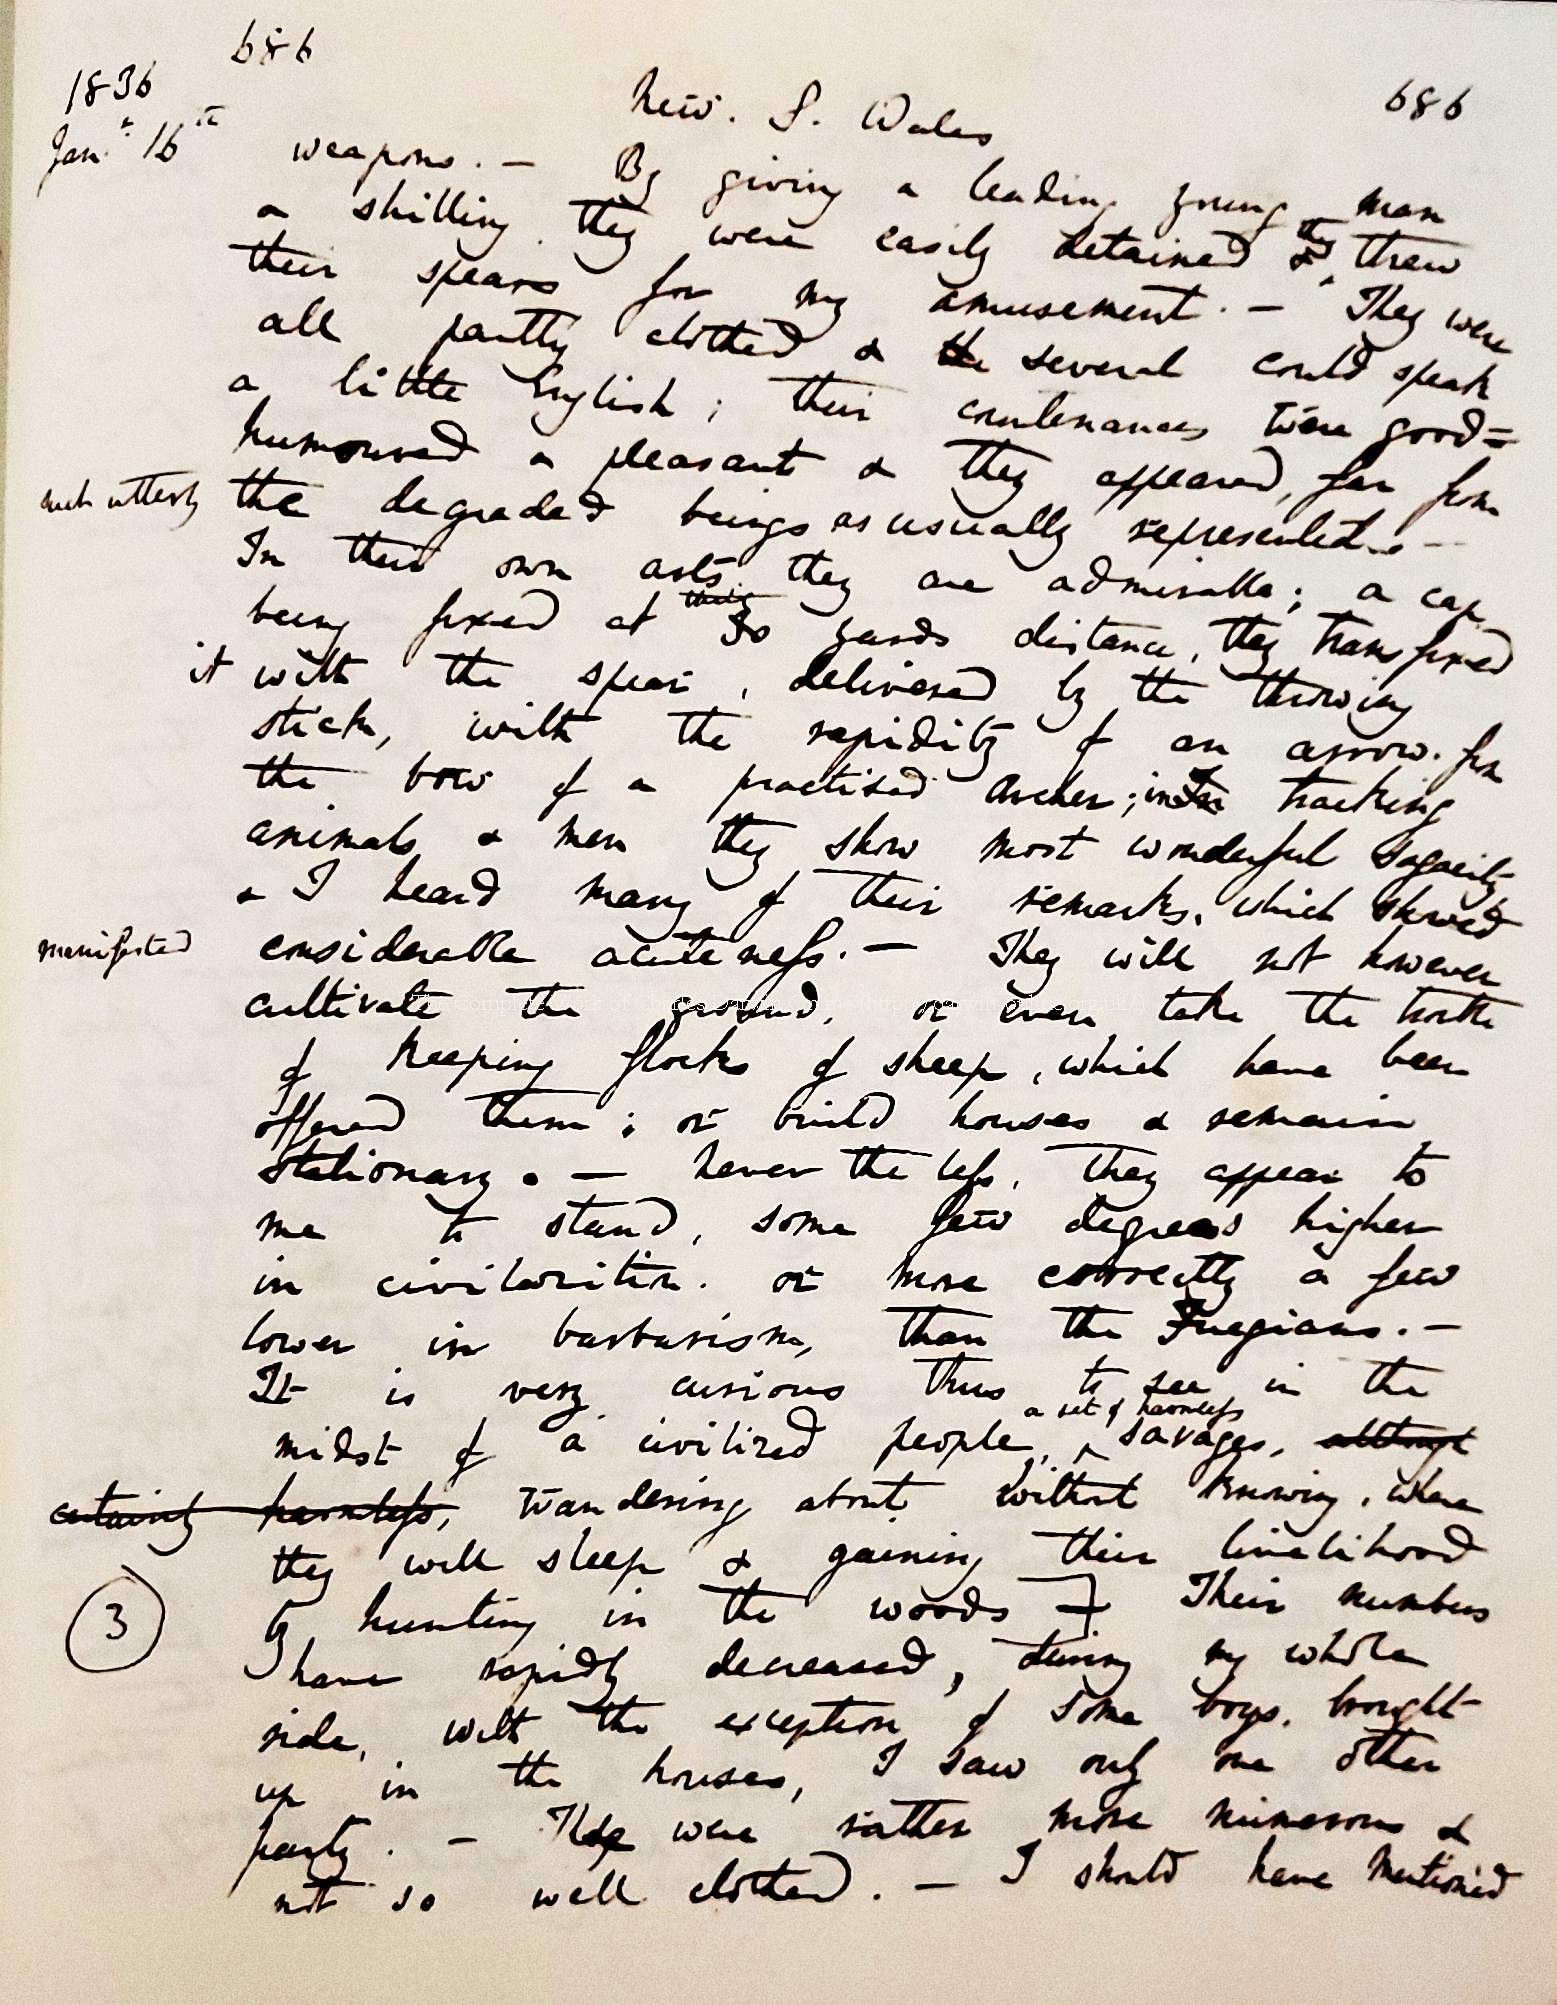 686
1836
New. S. Wales
686
Jan: 16th
weapons. — By giving a leading young man
a shilling they were easily detained & they threw
their spears for my amusement. — They were
all partly clothed & the several could speak
a little English; their countenances were good=
humoured & pleasant & they appeared, far from
such utterly the degraded beings as usually represented. —
In their own arts they are admirable; a cap
being fixed at thirty 30 yards distance, they transfixed
it with the spear, delivered by the throwing
stick, with the rapidity of an arrow from
the bow of a practised Archer; in tracking
animals & men they show most wonderful sagacity
& I heard many of their remarks, which showed
manifested considerable acuteness. — They will not however
cultivate the ground, or even take the trouble
of keeping flocks of sheep, which have been
offered them; or build houses & remain
stationary. — Never the less, they appear to
me to stand, some few degrees higher
in civilization, or more correctly a few
lower in barbarism, than the Fuegians. —
It is very curious thus to see in the
midst of a civilized people, a set of harmless savages, although
certainly harmless, wandering about without knowing, where
they will sleep & gaining their livelihood
by hunting in the woods Their numbers
3
have rapidly decreased, during my whole
ride, with the exception of some boys, brought
up in the houses, I saw only one other
party. — These were rather more numerous &
not so well clothed. — I should have mentioned